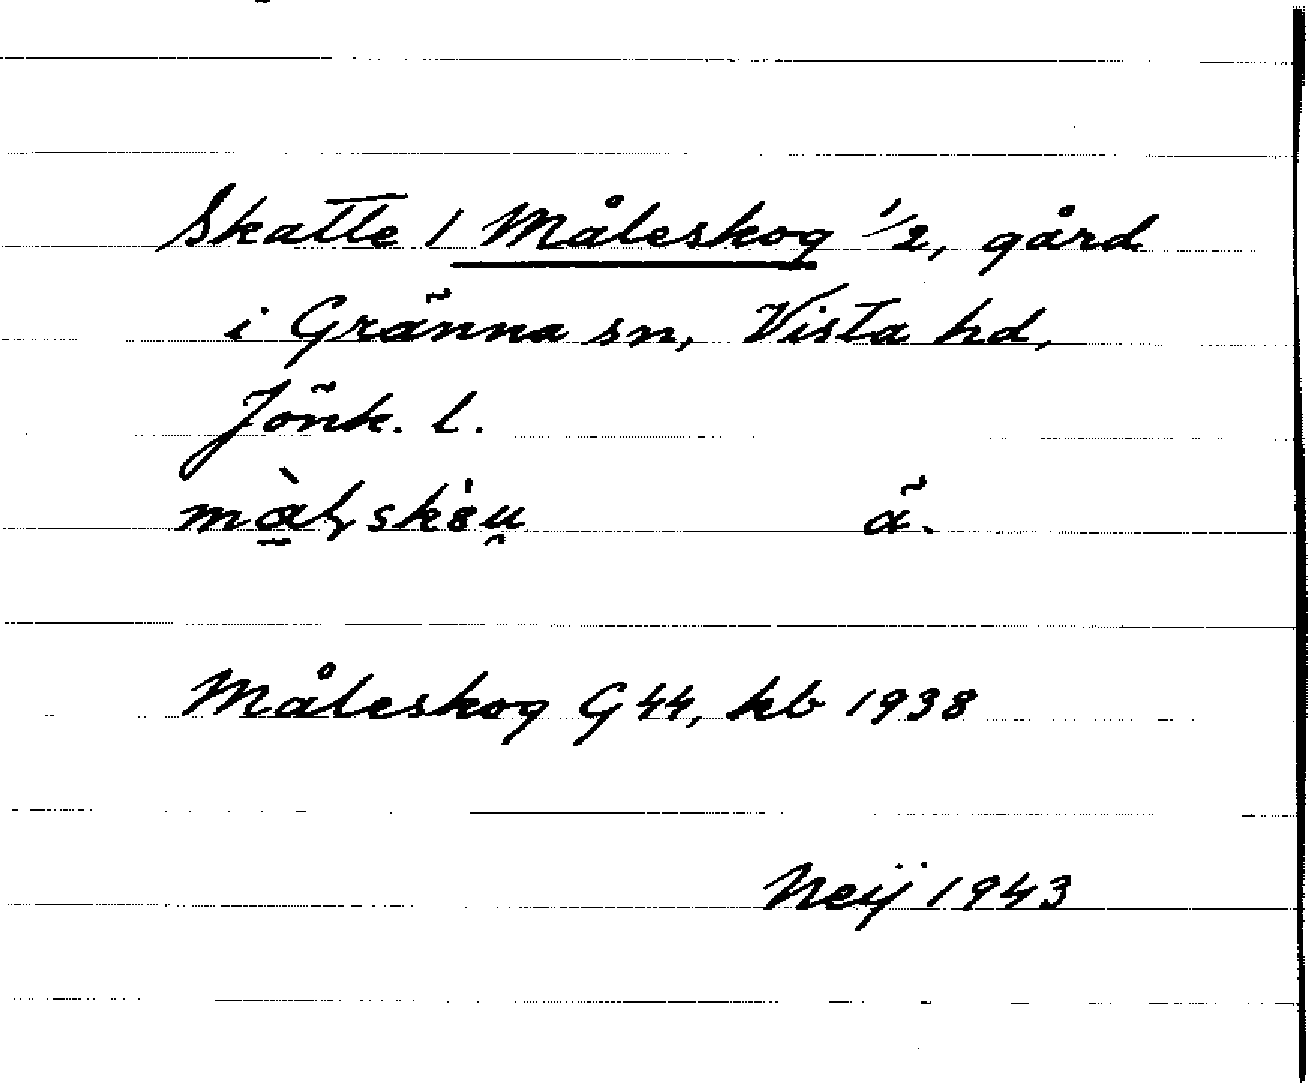 Skatte 1 Måleskog 1/2, gård
i Gränna sn, Vista hd,
Jönk. l.
ä.
Måleskog G 44, kb 1938
Neij 1943